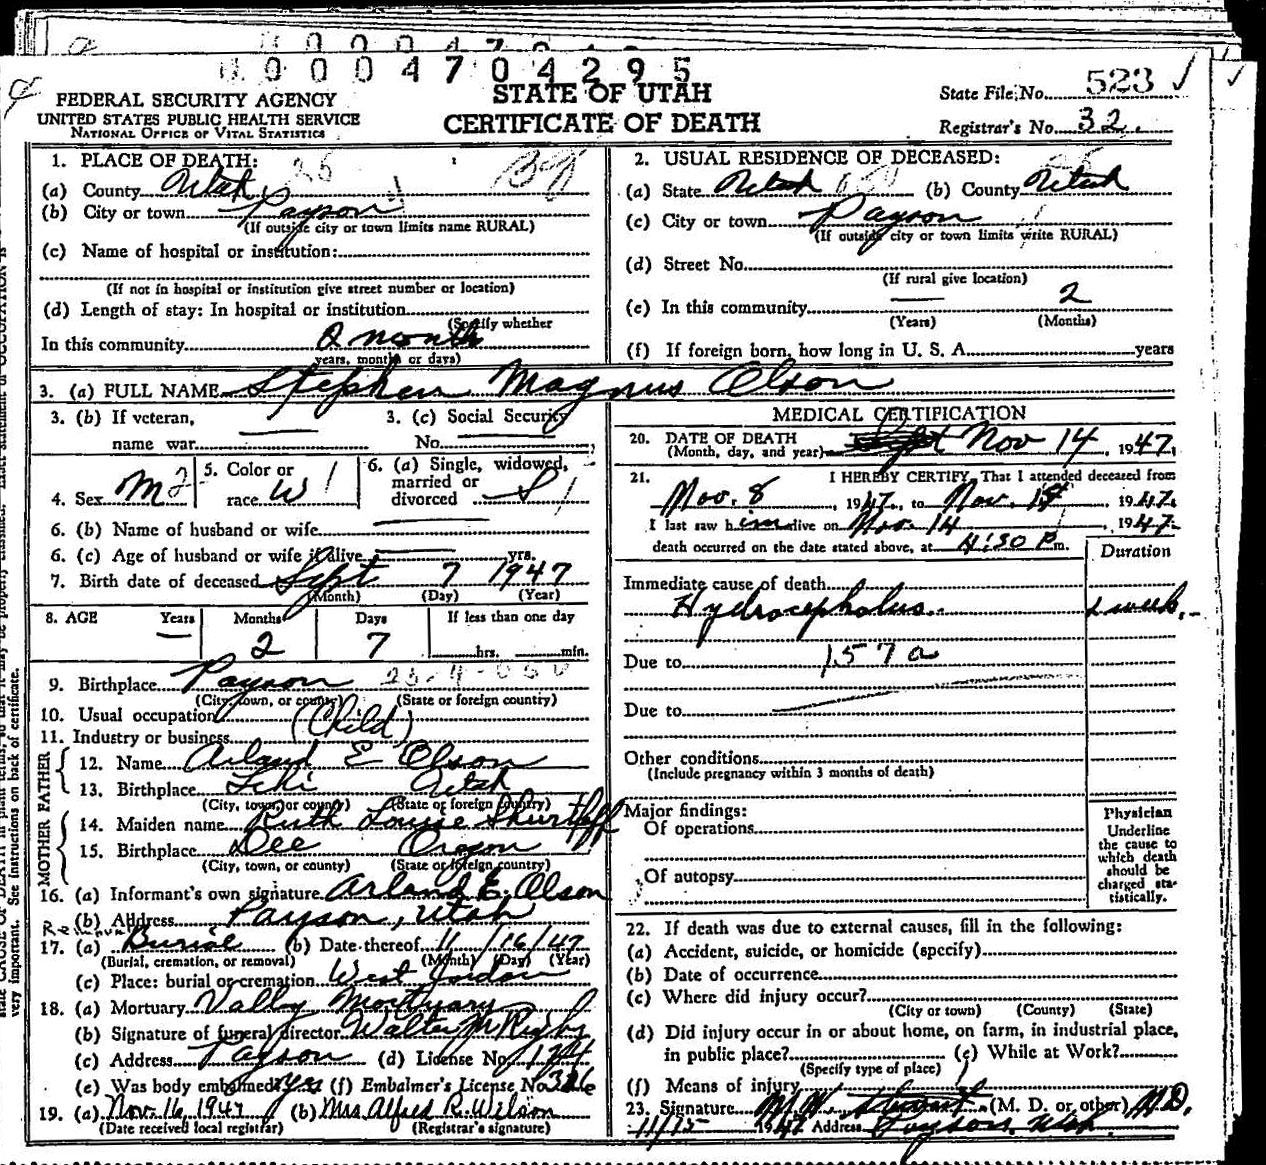 0000 4704295
STATE OF UTAH
CERTIFICATE OF DEATH
FEDERAL SECURITY AGENCY
UNITED STATES PUBLIC HEALTH SERVICE
NATIONAL OFFICE OF VITAL STATISTICS
State File No. 523
Registrar's No. 32.
1. PLACE OF DEATH:
(a) County Utah
(b) City or town Payson
(If outside city or town limits name RURAL)
(c) Name of hospital or institution:
(If not in hospital or institution give street number or location)
(d) Length of stay: In hospital or institution
(Specify whether
In this community 2 months
years, months or days)
2. USUAL RESIDENCE OF DECEASED:
(a) State Utah (b) County Utah
(c) City or town Payson
(If outside city or town limits write RURAL)
(d) Street No.
(If rural give location)
(e) In this community — 2
(Years) (Months)
(f) If foreign born, how long in U. S. A. years
3. (a) FULL NAME Stephen Magnus Olson
3. (b) If veteran, 3. (c) Social Security
name war — No. —
4. Sex M 5. Color or race W 6. (a) Single, widowed, married or divorced S
6. (b) Name of husband or wife —
6. (c) Age of husband or wife if alive — yrs.
7. Birth date of deceased Sept 7 1947
(Month) (Day) (Year)
8. AGE Years Months Days If less than one day
— 2 7 hrs. min.
9. Birthplace Payson
(City, town, or county) (State or foreign country)
10. Usual occupation
11. Industry or business (Child)
FATHER
12. Name Arland E Olson
13. Birthplace Lehi Utah
(City, town, or county) (State or foreign country)
MOTHER
14. Maiden name Ruth Louise Shurtleff
15. Birthplace Dee Oregon
(City, town, or county) (State or foreign country)
16. (a) Informant's own signature Arland E. Olson
(b) Address Payson, Utah
Removal
17. (a) Burial (b) Date thereof 11/16/47
(Burial, cremation, or removal) (Month) (Day) (Year)
(c) Place: burial or cremation West Jordan
18. (a) Mortuary Valley Mortuary
(b) Signature of funeral director Walter M Rigby
(c) Address Payson (d) License No. 124
(e) Was body embalmed? yes (f) Embalmer's License No. 326
19. (a) Nov. 16, 1947 (b) Mrs Alfred R. Wilson
(Date received local registrar) (Registrar's signature)
MEDICAL CERTIFICATION
20. DATE OF DEATH
(Month, day, and year) Nov 14, 1947.
21. I HEREBY CERTIFY, That I attended deceased from
Nov. 8, 1947, to Nov. 14, 1947.
I last saw him alive on Nov. 14, 1947.
death occurred on the date stated above, at 4:30 P.m.
Duration
Immediate cause of death
Hydrocephalus. 2 weeks.
Due to 157a
Due to
Other conditions
(Include pregnancy within 3 months of death)
Major findings:
Of operations
Of autopsy
Physician
Underline
the cause to
which death
should be
charged sta-
tistically.
22. If death was due to external causes, fill in the following:
(a) Accident, suicide, or homicide (specify)
(b) Date of occurrence
(c) Where did injury occur?
(City or town) (County) (State)
(d) Did injury occur in or about home, on farm, in industrial place,
in public place? (e) While at Work?
(Specify type of place)
(f) Means of injury
23. Signature M. W. Stewart (M. D. or other) M.D.
11/15 1947 Address Payson, Utah.
very important. See instructions on back of certificate.